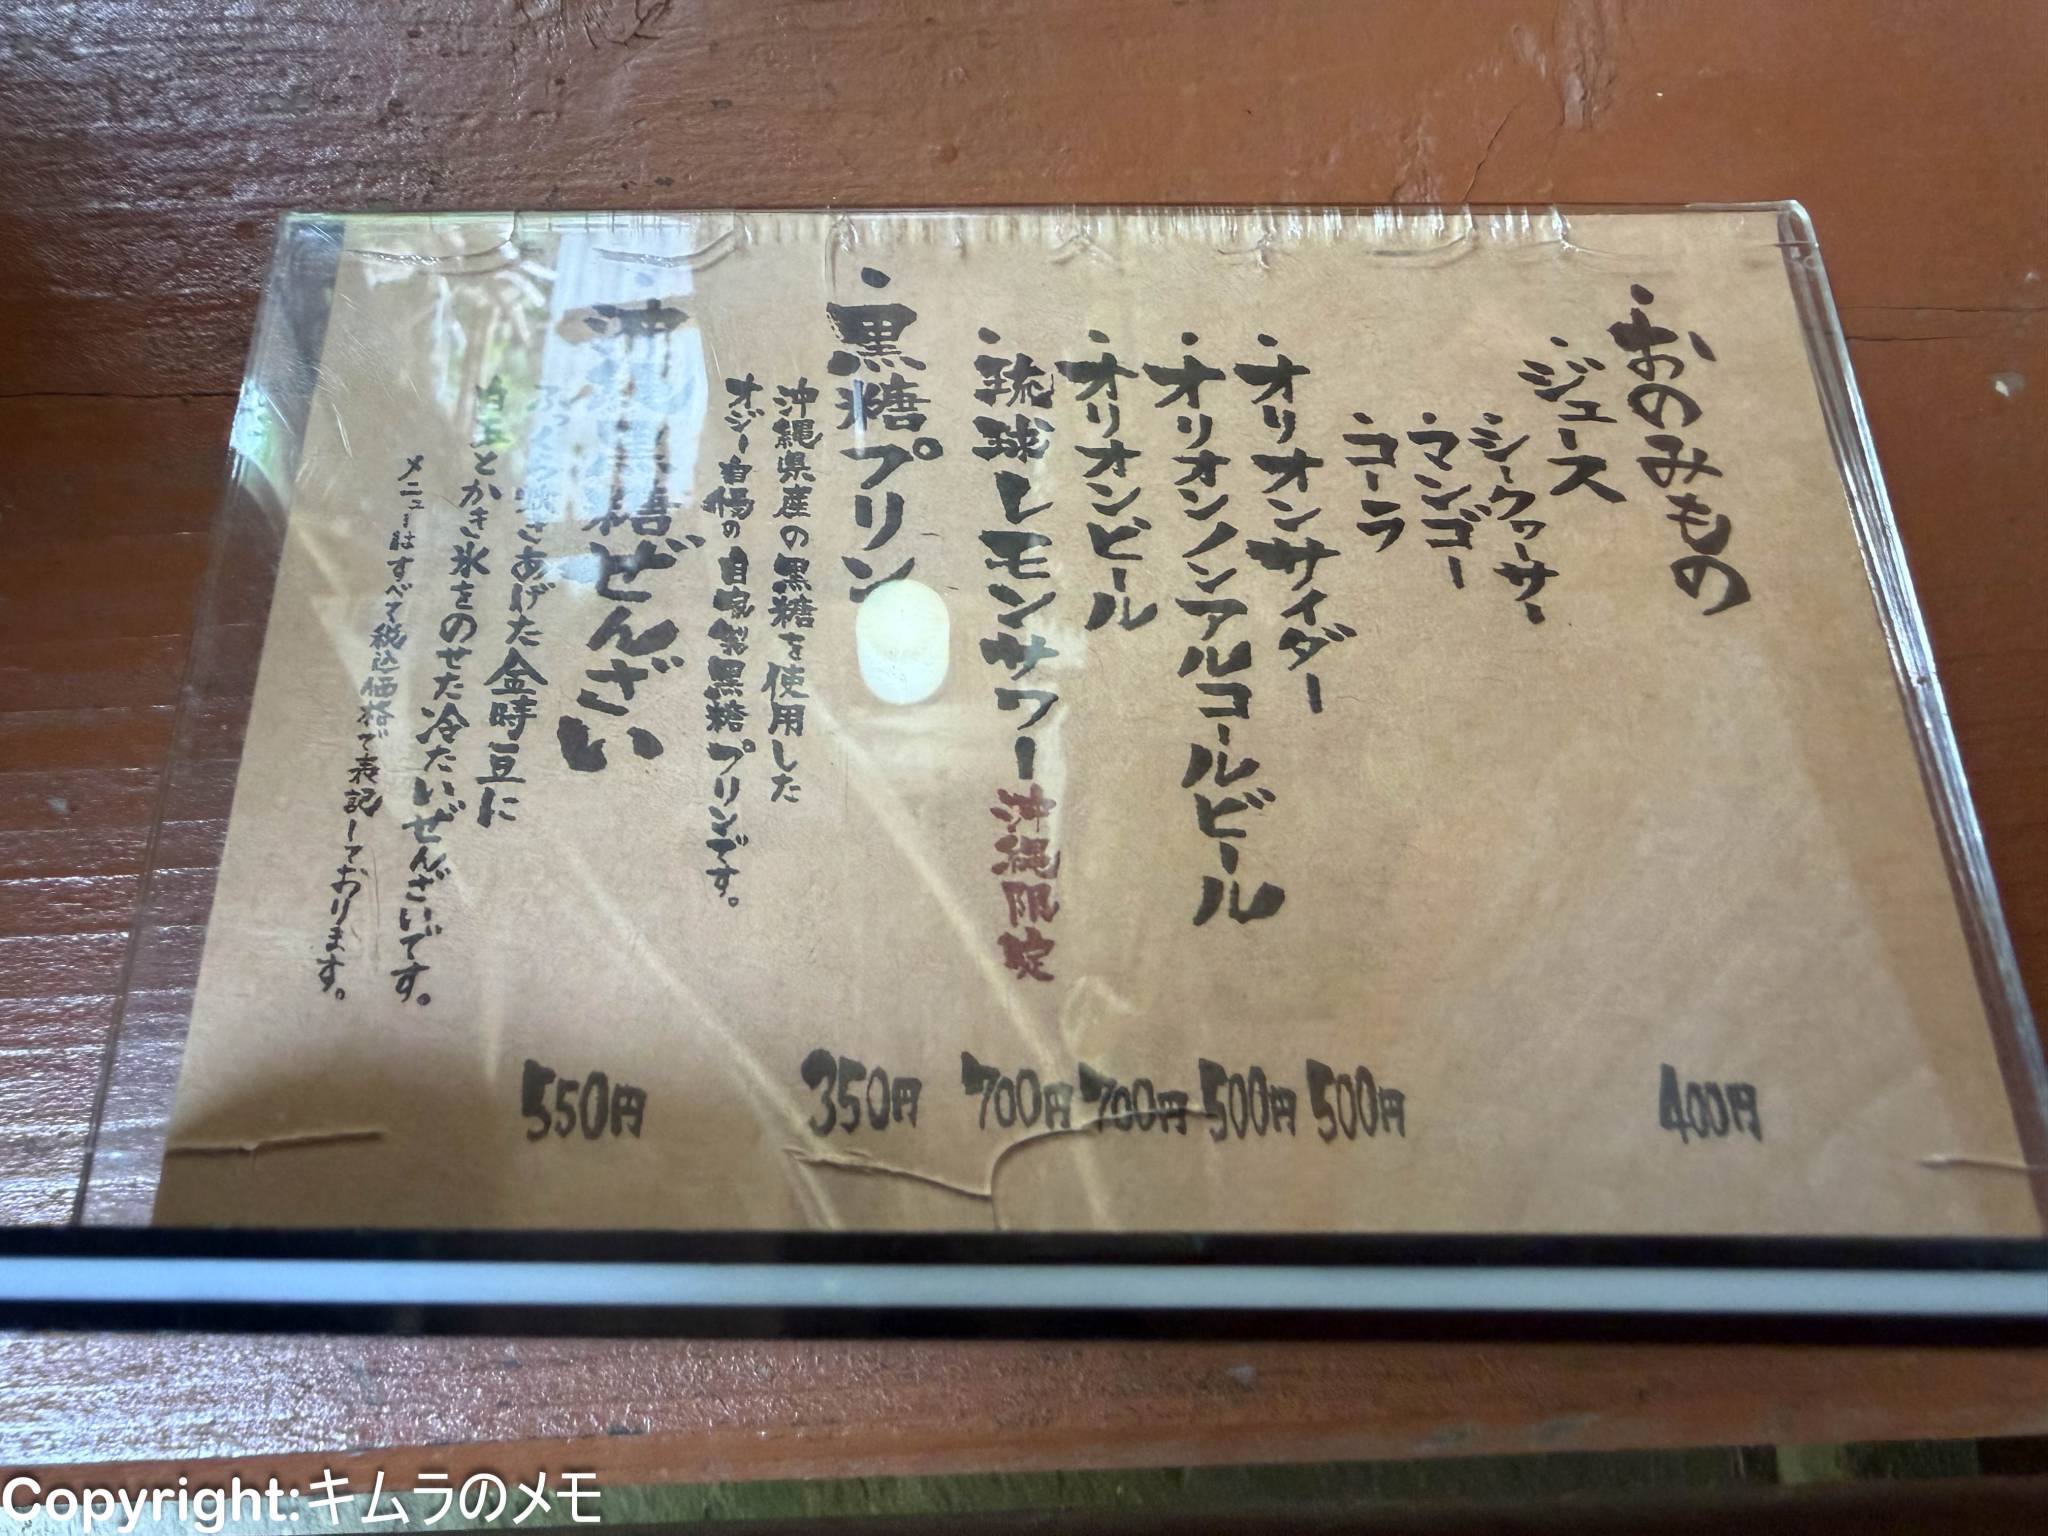 ・おのみもの
・ジュース 400円
・シークヮーサー
・マンゴー
・コーラ
・オリオンサイダー 500円
・オリオンノンアルコールビール 500円
・オリオンビール 700円
・琉球レモンサワー 沖縄限定 700円
・黒糖プリン 350円
沖縄県産の黒糖を使用した
オジー自慢の自家製黒糖プリンです。
・沖縄黒糖ぜんざい 550円
ふっくら炊きあげた金時豆に
白玉とかき氷をのせた冷たいぜんざいです。
メニューはすべて税込価格で表記しております。
Copyright:キムラのメモ